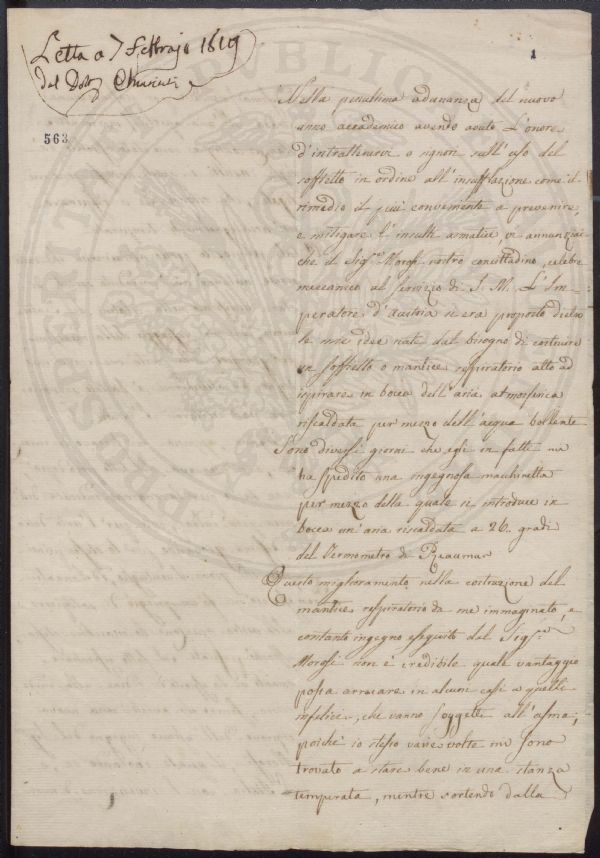 Letta a 7 Febbrajo 1819
dal Dott.
1
563
Nella penultima adunanza del nuovo
anno accademico avendo avuto l'onore
d'intrattenervi o signori sull'uso del
soffietto in ordine all'insufflazione come il
rimedio il più conveniente a prevenire,
e mitigare l'insulti asmatici, vi annunziai
che il Sig.re Morosi nostro concittadino, celebre
meccanico al servizio di S. M. L'Im-
peratore d'Austria si era proposto dietro
le mie idee nate dal bisogno di costruire
un soffietto o mantice respiratorio atto ad
inspirare in bocca dell'aria atmosferica
riscaldata per mezzo dell'acqua bollente
Sono diversi giorni che egli in fatti mi
ha spedito una ingegnosa macchinetta
per mezzo della quale si introduce in
bocca un'aria riscaldata a 26. gradi
del Termometro di Reaumur
Questo miglioramento nella costruzione del
mantice respiratorio da me immaginato, e
contanto ingegno eseguito dal Sig.re
Morosi non è credibile quale vantaggio
possa arrecare in alcuni casi a quelli
infelici, che vanno soggetti all'asma;
poichè io stesso varie volte mi sono
trovato a stare bene in una stanza
temperata, mentre sortendo dalla